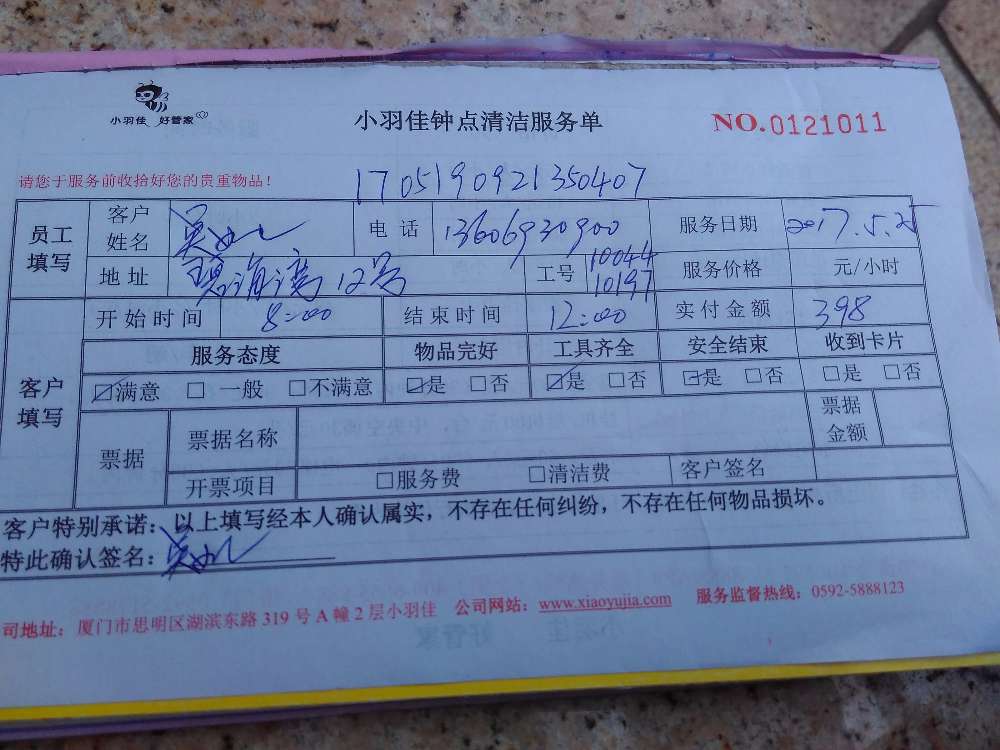 小羽佳 好管家
小羽佳钟点清洁服务单
NO.0121011
请您于服务前收拾好您的贵重物品！
1705190921350407
员工填写 客户姓名 电话 13606930900 服务日期 2017.5.25
地址 12号 工号 10044 10197 服务价格 元/小时
开始时间 8:00 结束时间 12:00 实付金额 398
客户填写 服务态度 物品完好 工具齐全 安全结束 收到卡片
☑满意 □一般 □不满意 ☑是 □否 ☑是 □否 ☑是 □否 □是 □否
票据 票据名称 票据金额
开票项目 □服务费 □清洁费 客户签名
客户特别承诺：以上填写经本人确认属实，不存在任何纠纷，不存在任何物品损坏。
特此确认签名：
司地址：厦门市思明区湖滨东路319号A幢2层小羽佳 公司网站：www.xiaoyujia.com 服务监督热线：0592-5888123